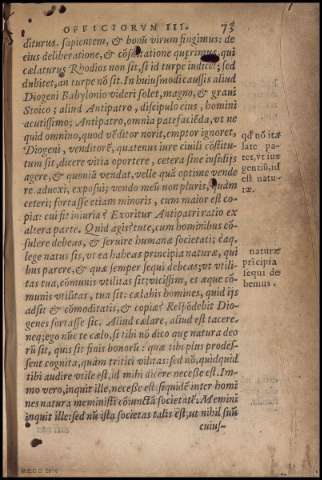 OFFICIORVM III. 73
diturus. sapientem, & bonũ virum fingimus: de
eius deliberatione, & cõsultatione quærimus, qui
celaturus Rhodios non sit, si id turpe iudicet: sed
dubitet, an turpe nõ sit. In huiusmodi caussis aliud
Diogeni Babylonio videri solet, magno, & graui
Stoico: aliud Antipatro, discipulo eius, homini
acutissimo; Antipatro, omnia patefaciẽda, vt ne
quid omnino, quod vẽditor norit, emptor ignoret,
Diogeni, venditorẽ, quatenus iure ciuili cõstitu-
tum sit, dicere vitia oportere, cetera sine insidijs
agere, & quoniã vendat, velle quã optime vende
re. aduexi, exposui; vendo meũ non pluris, quàm
ceteri; fortasse etiam minoris, cum maior est co-
pia: cui fit iniuria? Exoritur Antipatri ratio ex
altera parte. Quid agis? tute, cum hominibus cõ-
sulere debeas, & seruire humanæ societati; eaq.
lege natus sis, vt ea habeas principia naturæ, qui
bus parere, & quæ semper sequi debeas; vt vtili-
tas tua, cõmunis vtilitas sit; vicissim, et æque cõ-
munis vtilitas, tua sit: cælabis homines, quid ijs
adsit & cõmoditatis, & copiæ? Respõdebit Dio-
genes fortasse sic. Aliud cælare, aliud est tacere.
neq; ego nũc te cælo, si tibi nõ dico quæ natura deo
rũ sit, quis sit finis bonorũ: quæ tibi plus prodes-
sent cognita, quàm tritici vilitas: sed nõ, quidquid
tibi audire vtile est, id mihi dicere necesse est. Im-
mo vero, inquit ille, necesse est: siquidẽ inter homi
nes natura meministi cõiunctã societatẽ. Memini
inquit ille: sed nũ ista societas talis est, vt nihil suũ
cuius-
qđ nõ itæ
late pa-
tet, vt ius
gentiũ, id
est natu-
ræ.
naturæ
prĩcipia
sequi de
bemus.